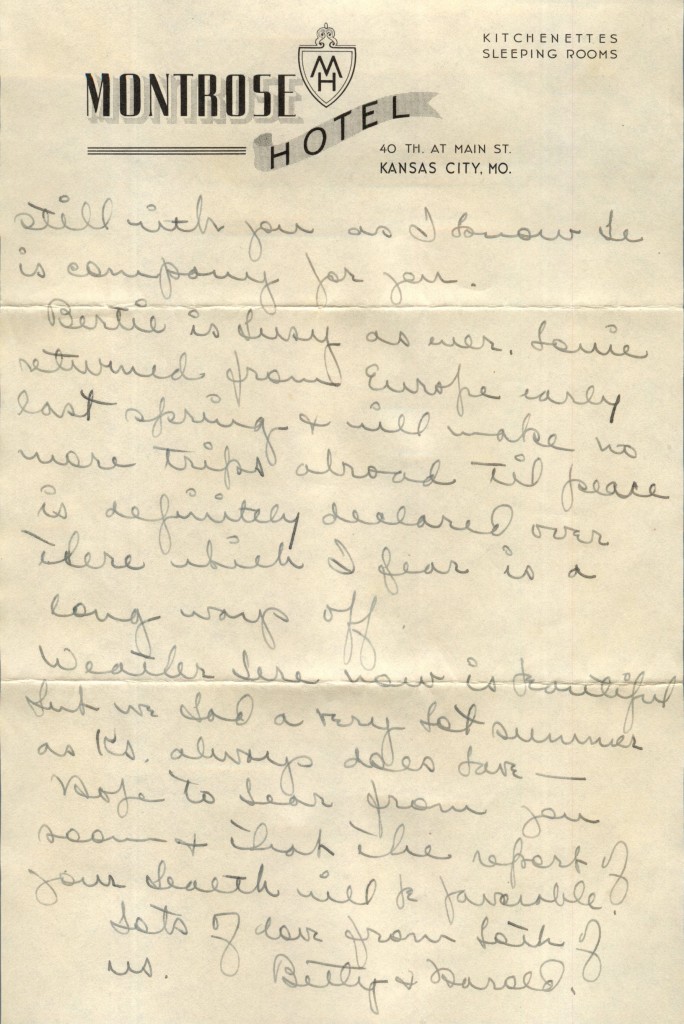 KITCHENETTES
SLEEPING ROOMS
MH
MONTROSE
HOTEL
40 TH. AT MAIN ST.
KANSAS CITY, MO.
still with you as I know he
is company for you.
Bertie is busy as ever.
returned from Europe early
last spring & will make no
more trips abroad til peace
is definitely declared over
there which I fear is a
long ways off.
Weather here now is beautiful
but we had a very hot summer
as Ks. always does have —
Hope to hear from you
soon & that the report of
your health will be favorable.
Lots of love from both of
us. Betty & Harold.